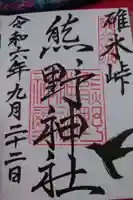 碓氷峠
熊野神社
令和六年九月二十二日